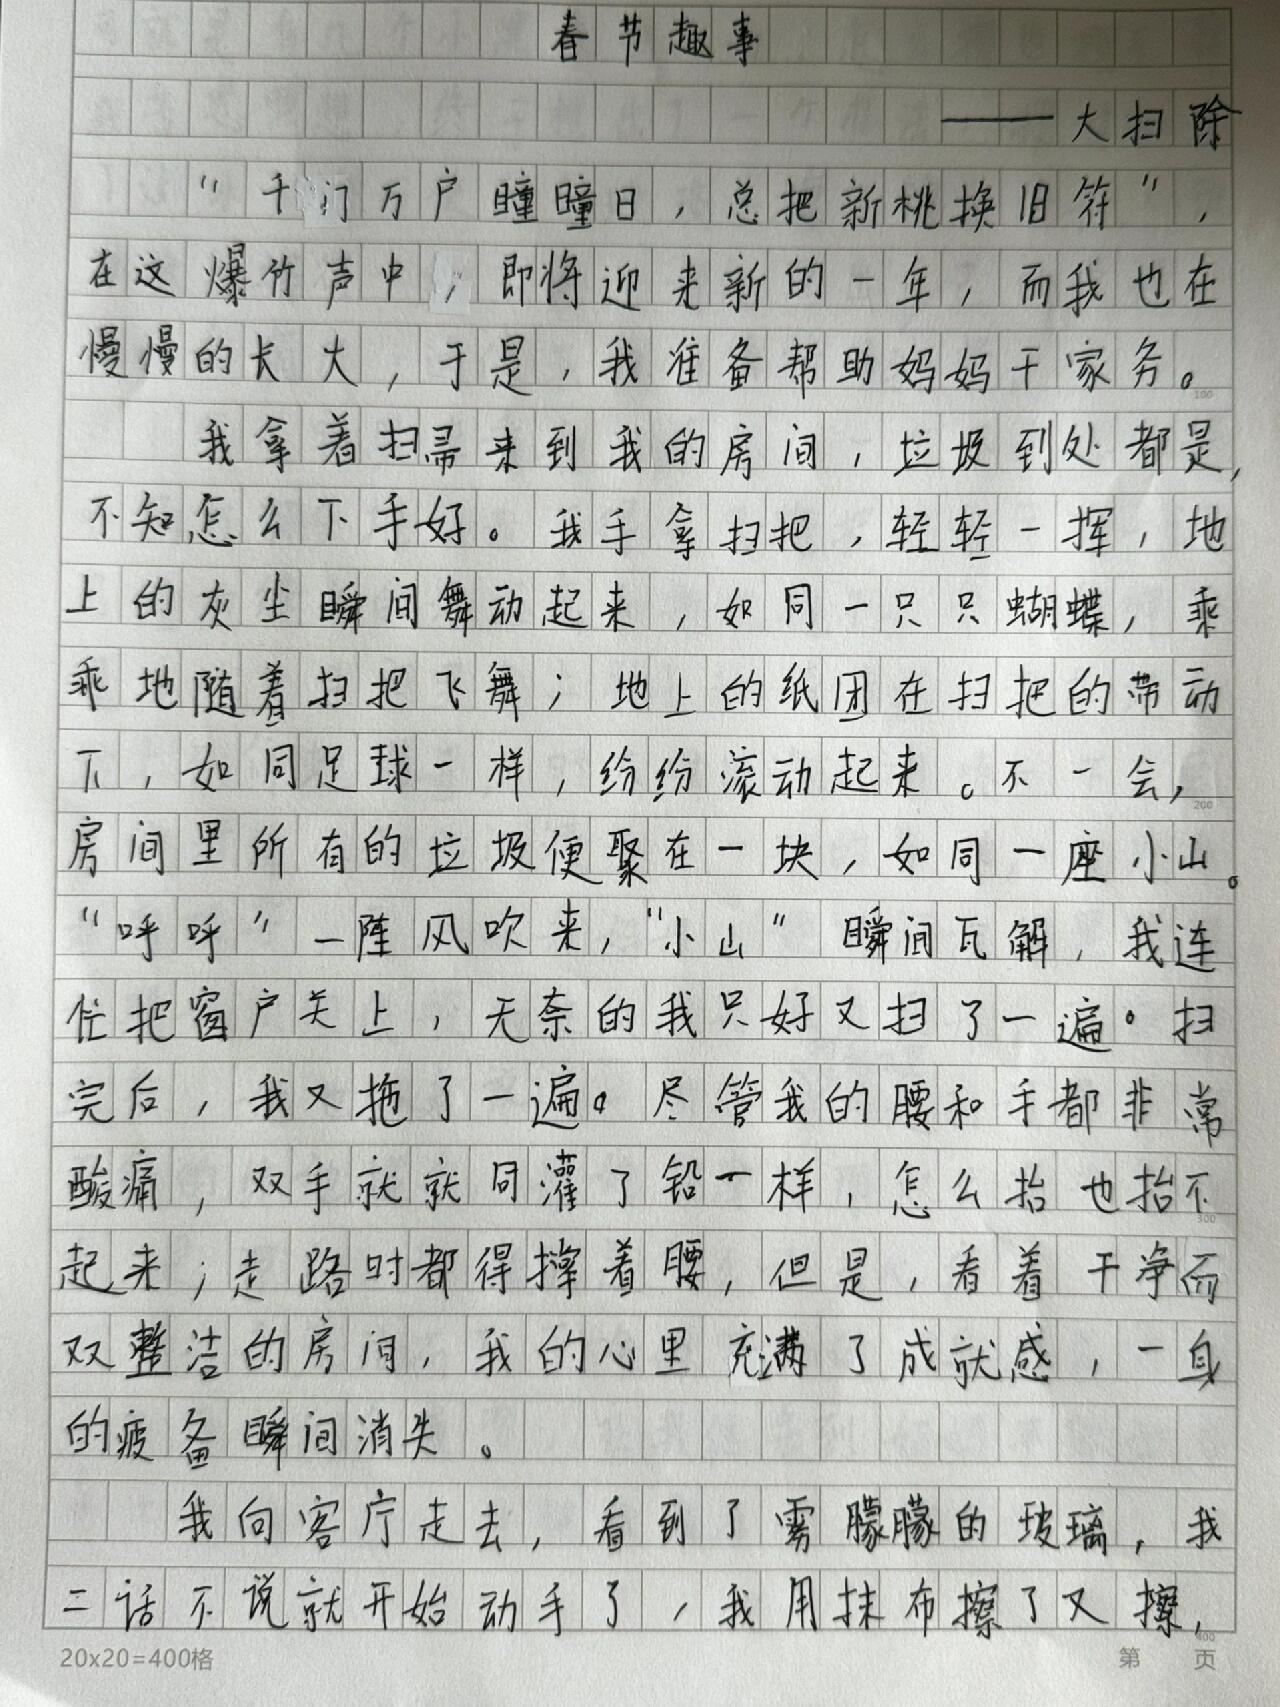 春节趣事
——大扫除
“千门万户瞳瞳日，总把新桃换旧符”，
在这爆竹声中，即将迎来新的一年，而我也在
慢慢的长大，于是，我准备帮助妈妈干家务。
我拿着扫帚来到我的房间，垃圾到处都是，
不知怎么下手好。我手拿扫把，轻轻一挥，地
上的灰尘瞬间舞动起来，如同一只只蝴蝶，乘
乘地随着扫把飞舞；地上的纸团在扫把的带动
下，如同足球一样，纷纷滚动起来。不一会，
房间里所有的垃圾便聚在一块，如同一座小山。
“呼呼”一阵风吹来，“小山”瞬间瓦解，我连
忙把窗户关上，无奈的我只好又扫了一遍。扫
完后，我又拖了一遍。尽管我的腰和手都非常
酸痛，双手就就同灌了铅一样，怎么抬也抬不
起来；走路时都得撑着腰，但是，看着干净而
双整洁的房间，我的心里充满了成就感，一身
的疲备瞬间消失。
我向客厅走去，看到了雾朦朦的玻璃，我
二话不说就开始动手了，我用抹布擦了又擦，
20x20=400格
第 页
100
200
300
400